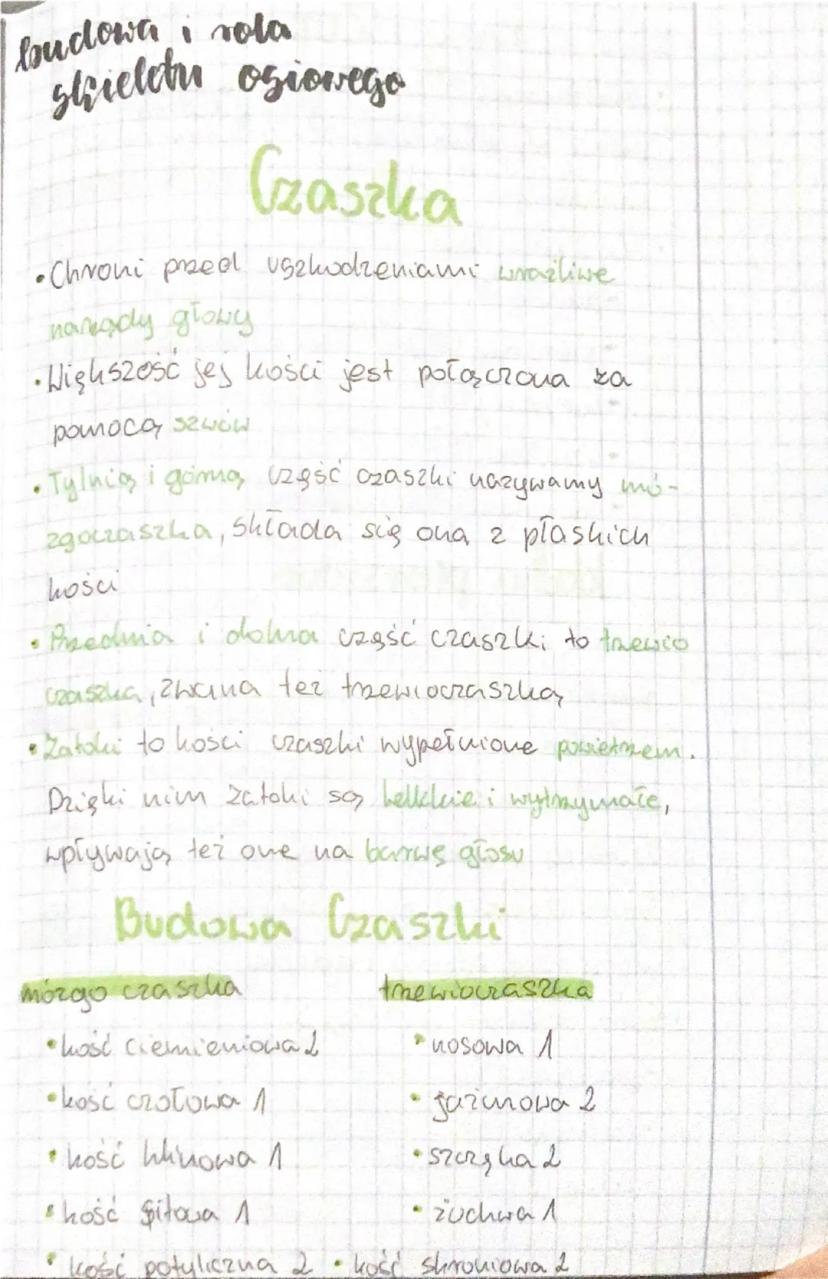 budowa i rola
szkieletu osiowego
Czaszka
•Chroni przed uszkodzeniami wrażliwe
narządy głowy
•Większość jej kości jest połączona za
pomocą szwów
•Tylnią i górną część czaszki nazywamy mó-
zgoczaszka, składa się ona z płaskich
kości
•Przednia i dolna część czaszki to trzewio
czaszka, zwana też trzewioczaszką
•Zatoki to kości czaszki wypełnione powietrzem.
Dzięki nim zatoki są lekkie i wytrzymałe,
wpływają też one na barwę głosu
Budowa Czaszki
mózgo czaszka trzewioczaszka
•kość ciemieniowa 2 •nosowa 1
•kość czołowa 1 •jarzmowa 2
•kość klinowa 1 •szczęka 2
•kość sitowa 1 •żuchwa 1
•kość potyliczna 2 •kość skroniowa 2